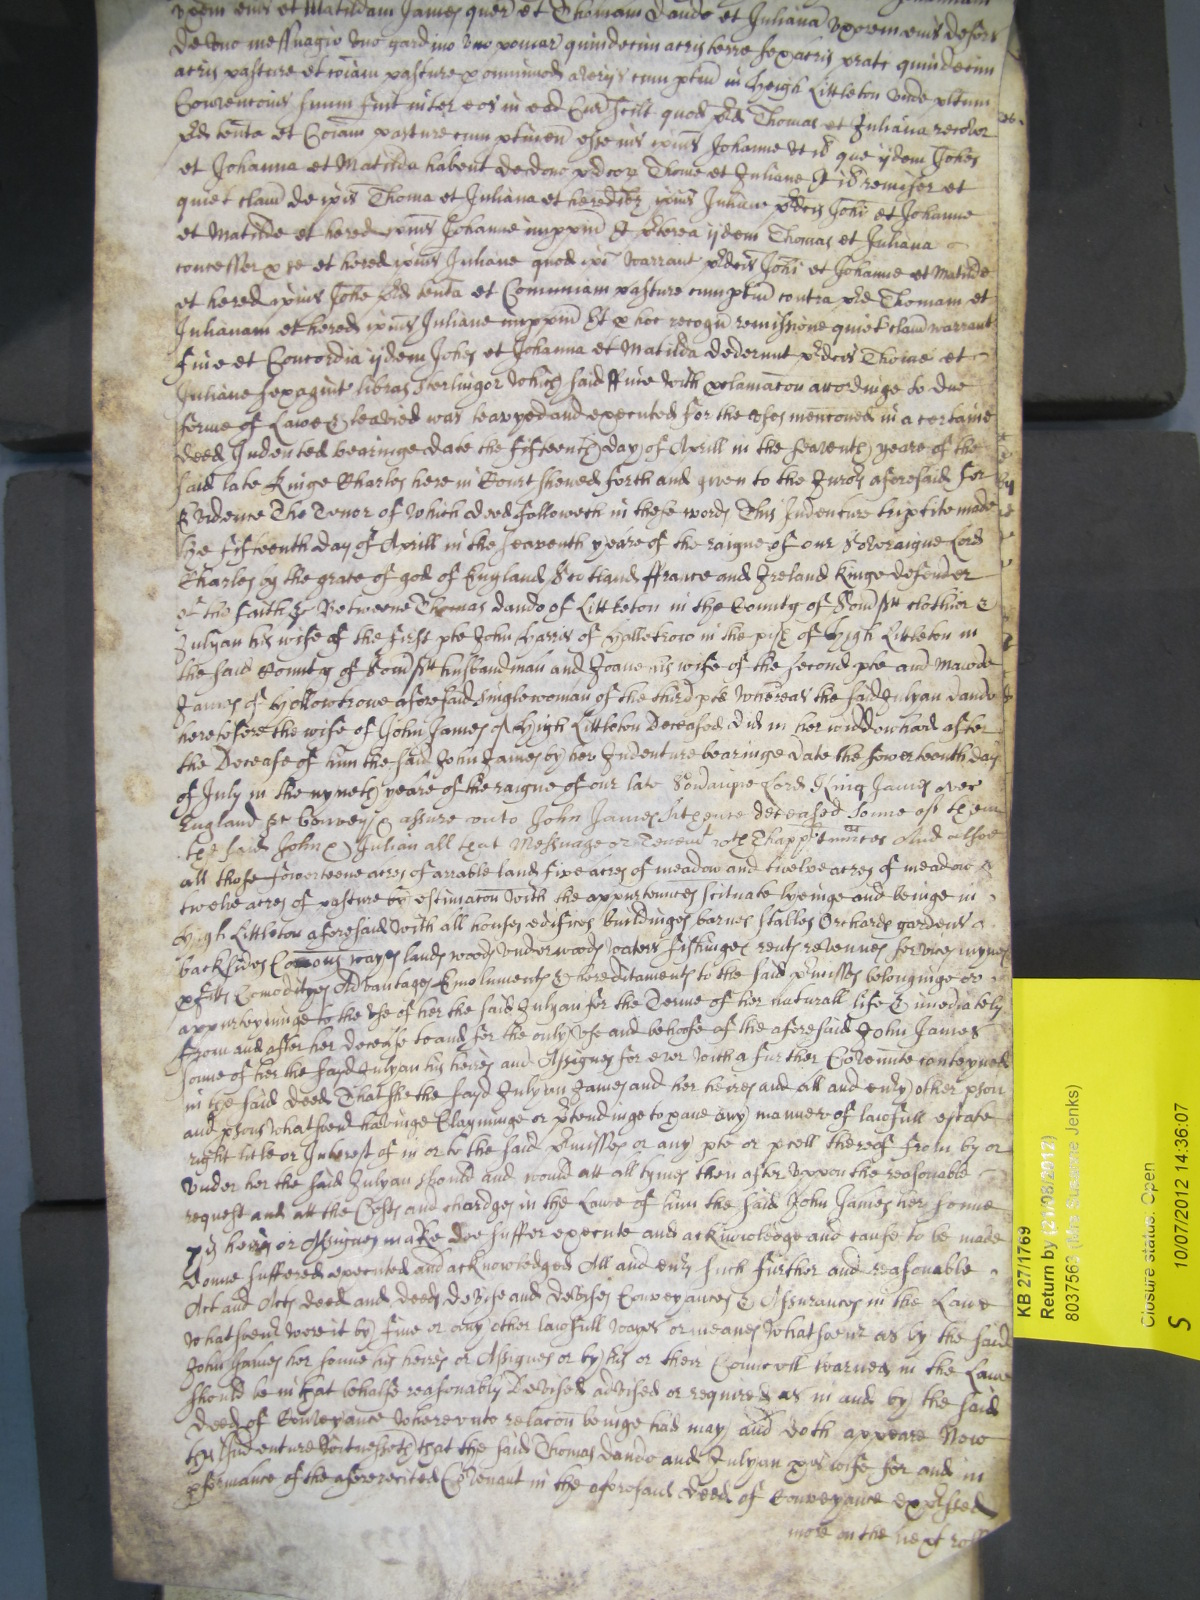 vxorem eius et Matildam James quer et Thomam Dando et Juliana vxorem eius deforc
De vno messuagio vno gardino vno pomar quindecim acris terre sex acris prati quindecim
acris pasture et coiam pasture p omnimod averijs cum ptin in heigh Littleton vnde plitum
Convencois sum fuit inter eos in ead Cur Scilt quod pd Thomas et Juliana recogn
pd tenta et Coiam pasture cum ptinen esse ius ipius Johanne vt ill que ijdem Johes
et Johanna et Matilda habent de dono pdcor Thome et Juliane Et ill remiser et
quiet clam de ipis Thoma et Juliana et heredibz ipius Juliane pdcis Johi et Johanne
et Matilde et hered ipius Johanne imppm Et pterea ijdem Thomas et Juliana
concesser p se et hered ipius Juliane quod ipi warrant pdcis Johi et Johanne et Matilde
et hered ipius Johe pd tenta et Comuniam pasture cum ptin contra pd Thomam et
Julianam et hered ipius Juliane imppm Et p hac recogn remissione quiet clam warrant
fine et Concordia ijdem Johes et Johanna et Matilda dederunt pdcis Thome et
Juliane sexagint libras sterlingor Which said ffine with proclamacon accordinge to due
forme of Lawe leavied was leavyed and executed for the vses mencioned in a certaine
deed Indented bearinge date the fifteenth day of Aprill in the seaventh yeare of the
said late Kinge Charles here in Court shewed forth and given to the Jurors aforesaid for
Evidence The Tenor of which deed followeth in these words This Indenture triptite made
the fifteenth day of Aprill in the seaventh yeare of the raigne of our Soveraigne Lord
Charles by the grace of god of England Scotland ffrance and Ireland Kinge defender
of the faith &c Betweene Thomas dando of Littleton in the County of Somst clothier &
Julyan his wife of the first pte John Harris of Halletrow in the pish of High Littleton in
the said County of Somst husbandman and Joane his wife of the second pte and Mawde
James of Hollowtrowe aforesaid singlewoman of the third pte Whereas the said Julyan Dando
heretofore the wife of John James of High Littleton Deceased did in her widdowhod after
the Decease of him the said John James by her Indenture bearinge date the fowerteenth day
of July in the nyneth yeare of the raigne of our late Sovaigne Lord King James over
England &c Convey & assure vnto John James sithence deceased Sonne of them
the said John & Julian all that Messuage or Tenemt with thappurtnnces And alsoe
all those fowerteene acres of arrable land five acres of meadow and twelve acres of meadow &
twelve acres of pasture by estimacon with the appurtennces scituate lyeinge and beinge in
High Littleton aforesaid with all houses edifices buildinges barnes stalles Orchards gardens
backsides Comons wayes lands woods vnderwoods waters fishinges rents revenues services mynes
pfitts Comodityes Advantages Emoluments & hereditaments to the said pmisses belonginge or
appurteyninge to the vse of her the said Julyan for the Terme of her naturall life & imediately
from and after her decease to and for the only vse and behoofe of the aforesaid John James
sonne of her the sayd Julyan his heires and Assignes for ever with a further Covennte conteyned
in the said deed That she the sayd Julyan James and her heires and all and evry other pson
and psons whatsoevr havinge Clayminge or ptendinge to have any manner of lawfull estate
right title or Interest of in or to the said pmisses or any pte or pcell thereof from by or
vnder her the said Julyan should and would att all tymes then after vppon the reasonable
request and att the Costs and chardges in the Lawe of him the said John James her sonne
his heires or Assignes make doe suffer execute and acknowledge and cause to be made
donne suffered executed and acknowledged All and evry such further and reasonable
Act and Acts deed and deeds devise and devises Conveyances & Assurances in the Lawe
whatsoevr were it by fine or any other lawfull wayes or meanes whatsoevr as by the said
John James her sonne his heires or Assignes or by his or their Councell learned in the Lawe
should be in that behalfe reasonably devised advised or required as in and by the said
Deed of Conveyance wherevnto relacon beinge had may and doth appeare Now
this Indenture Witnesseth that the said Thomas Dando and Julyan his wife for and in
pformance of the aforerecited Covenant in the aforesaid deed of Conveyance expssed
more on the next roll
KB 27/1769
Return by (21/08/2012)
8037563 (Mrs Susanne Jenks)
Closure status: Open
10/07/2012 14:36:07
S